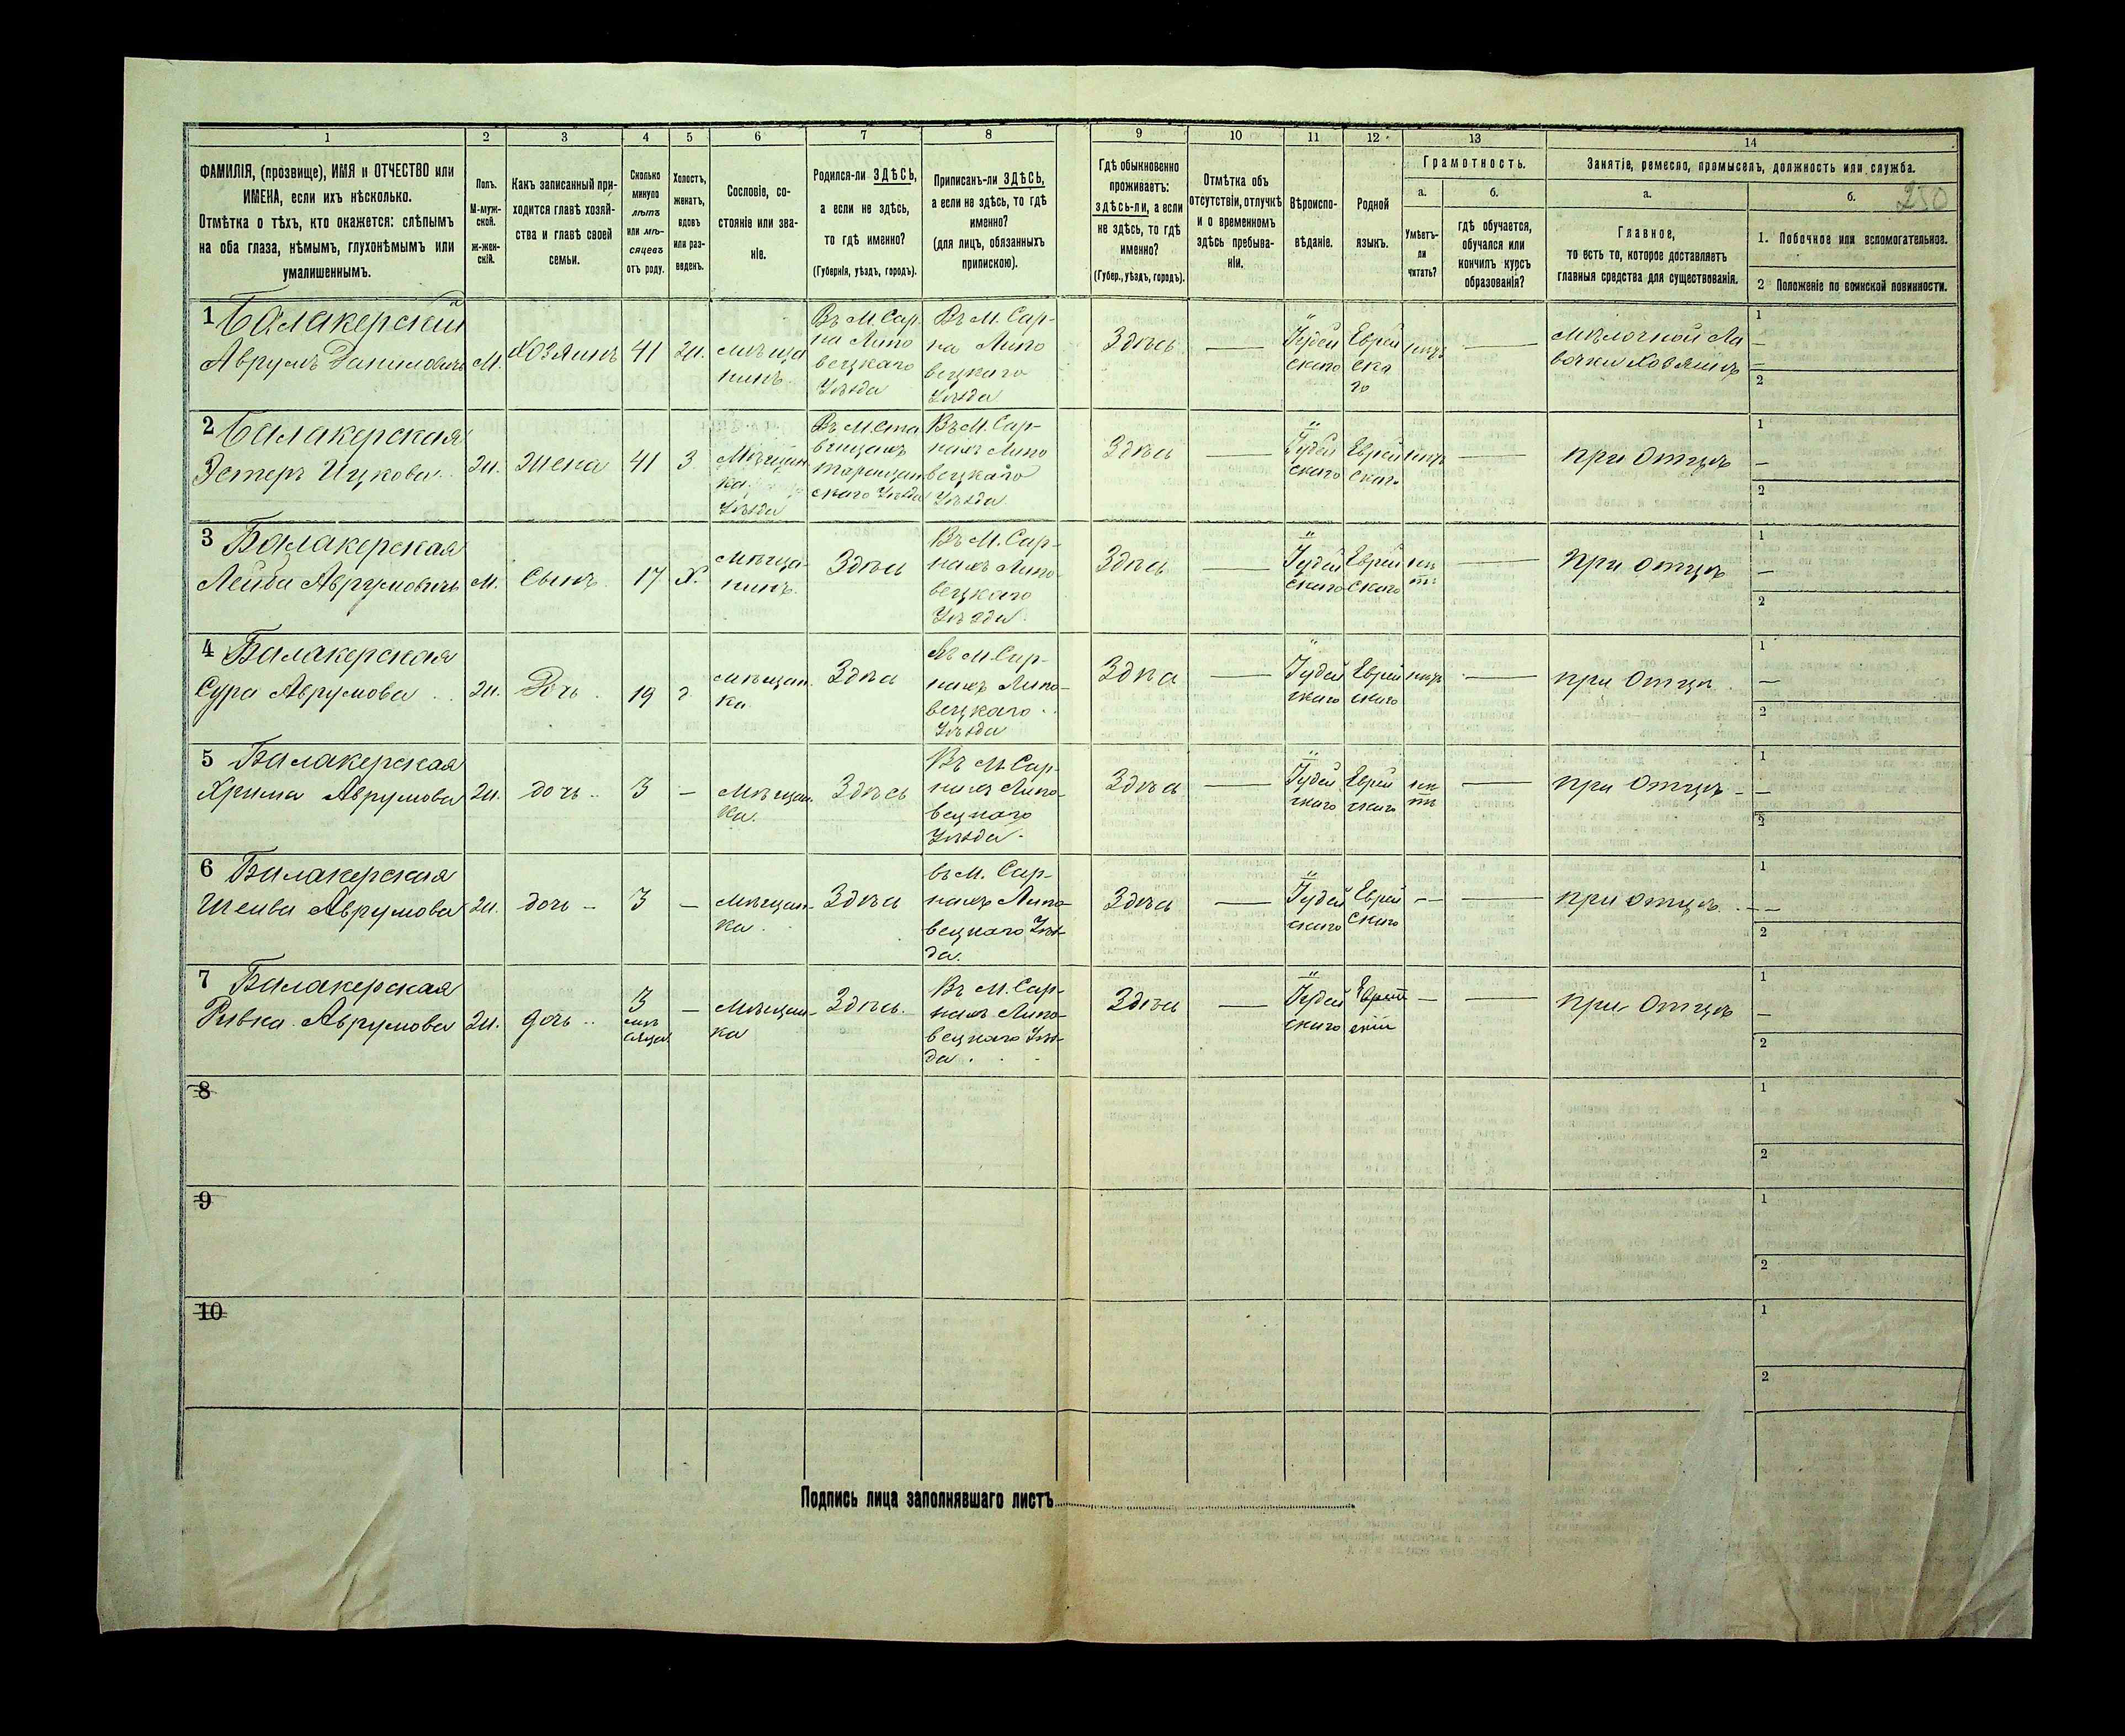 1 2 3 4 5 6 7 8 9 10 11 12 13 14
ФАМИЛІЯ, (прозвище), ИМЯ и ОТЧЕСТВО или
ИМЕНА, если ихъ нѣсколько.
Отмѣтка о тѣхъ, кто окажется: слѣпымъ
на оба глаза, нѣмымъ, глухонѣмымъ или
умалишеннымъ.
Полъ.
М-муж-
ской.
ж-жен-
скій.
Какъ записанный при-
ходится главѣ хозяй-
ства и главѣ своей
семьи.
Сколько
минуло
лѣтъ
или мѣ-
сяцевъ
отъ роду.
Холостъ,
женатъ,
вдовъ
или раз-
веденъ.
Сословіе, со-
стояніе или зва-
ніе.
Родился-ли ЗДѢСЬ,
а если не здѣсь,
то гдѣ именно?
(Губернія, уѣздъ, городъ).
Приписанъ-ли ЗДѢСЬ,
а если не здѣсь, то гдѣ
именно?
(для лицъ, обязанныхъ
припискою).
Гдѣ обыкновенно
проживаетъ:
здѣсь-ли, а если
не здѣсь, то гдѣ
именно?
(Губер., уѣздъ, городъ).
Отмѣтка объ
отсутствіи, отлучкѣ
и о временномъ
здѣсь пребыва-
ніи.
Вѣроиспо-
вѣданіе.
Родной
языкъ.
Грамотность.
а.
Умѣетъ-
ли
читать?
б.
гдѣ обучается,
обучался или
кончилъ курсъ
образованія?
Занятіе, ремесло, промыселъ, должность или служба.
а.
Главное,
то есть то, которое доставляетъ
главныя средства для существованія.
б.
250
1. Побочное или вспомогательное.
2 Положеніе по воинской повинности.
1 Балакерскій
Аврумъ Даниловичъ
М.
хозяинъ
41
ж.
мѣща
нинъ
Въ М. Сар-
на Липо
вецкаго
Уѣзда
Въ М. Сар-
на Липо
вецкаго
Уѣзда
Здѣсь
—
Іудей
скаго
Еврей
ска
го
нѣтъ
—
мѣлочной Ла
вочки хозяинъ
1
—
2
2 Балакерская
Эстеръ Ицкова
ж.
жена
41
З
Мѣщан
ка
Уѣзда
Въ М. Ста
вищахъ
таращан
скаго Уѣзда
Въ М. Сар-
нахъ Липо
вецкаго
Уѣзда
Здѣсь
—
Іудей
скаго
Еврей
скаго
нѣтъ
—
при Отцѣ
1
—
2
3 Балакерская
Лейба Аврумовичъ
М.
Сынъ
17
Х.
мѣща-
нинъ.
Здѣсь
Въ М. Сар-
нахъ Липо-
вецкаго
Уѣзда
Здѣсь
—
Іудей
скаго
Еврей
скаго
нѣ
тъ
—
при отцѣ
1
—
2
4 Балакерская
Сура Аврумова
ж.
Дочь
19
мѣщан
ка
Здѣсь
Въ М. Сар-
нахъ Липо-
вецкаго
Уѣзда
Здѣсь
—
Іудей
скаго
Еврей
скаго
нѣтъ
—
при Отцѣ
1
—
2
5 Балакерская
Аврумова
ж.
дочь
3
—
Мѣщан
ка.
Здѣсь
Въ М. Сар-
нахъ Липо-
вецкаго
Уѣзда
Здѣсь
—
Іудей
скаго
Еврей
скаго
нѣ
тъ
—
при Отцѣ
1
—
2
6 Балакерская
Аврумова
ж.
дочь
3
—
Мѣщан-
ка
Здѣсь
въ М. Сар-
нахъ Липо-
вецкаго Уѣз-
да.
Здѣсь
—
Іудей
скаго
Еврей
скаго
—
—
при отцѣ
1
—
2
7 Балакерская
Ривка Аврумова
ж.
дочь
3
мѣ
сяца
—
Мѣщан-
ка
Здѣсь
Въ М. Сар-
нахъ Липо-
вецкаго Уѣз-
да
Здѣсь
—
Іудей
скаго
Еврей
скій
—
—
при Отцѣ
1
—
2
8
1
2
9
1
2
10
1
2
Подпись лица заполнявшаго листъ